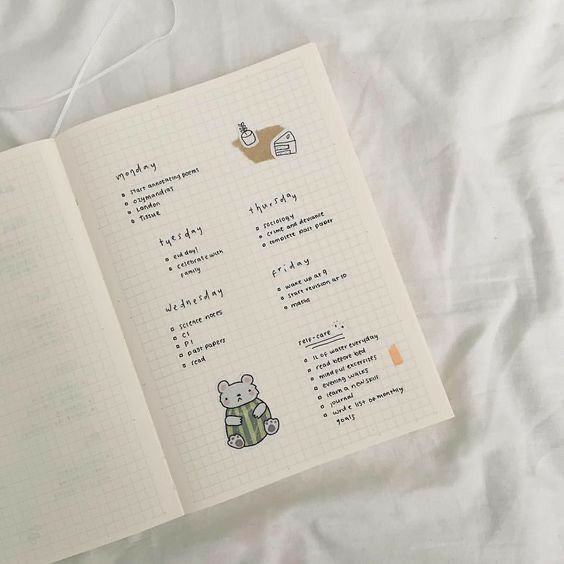 monday
start annotating poems
ozymandias
London
Tissue
tuesday
eid day!
celebrate with
family
wednesday
science notes
C1
P1
past papers
read
thursday
sociology
crime and deviance
complete past paper
friday
wake up at 9
start revision at 10
maths
self-care
1L of water everyday
read before bed
mindful excersises
evening walks
learn a new skill
journal
write list of monthly
goals